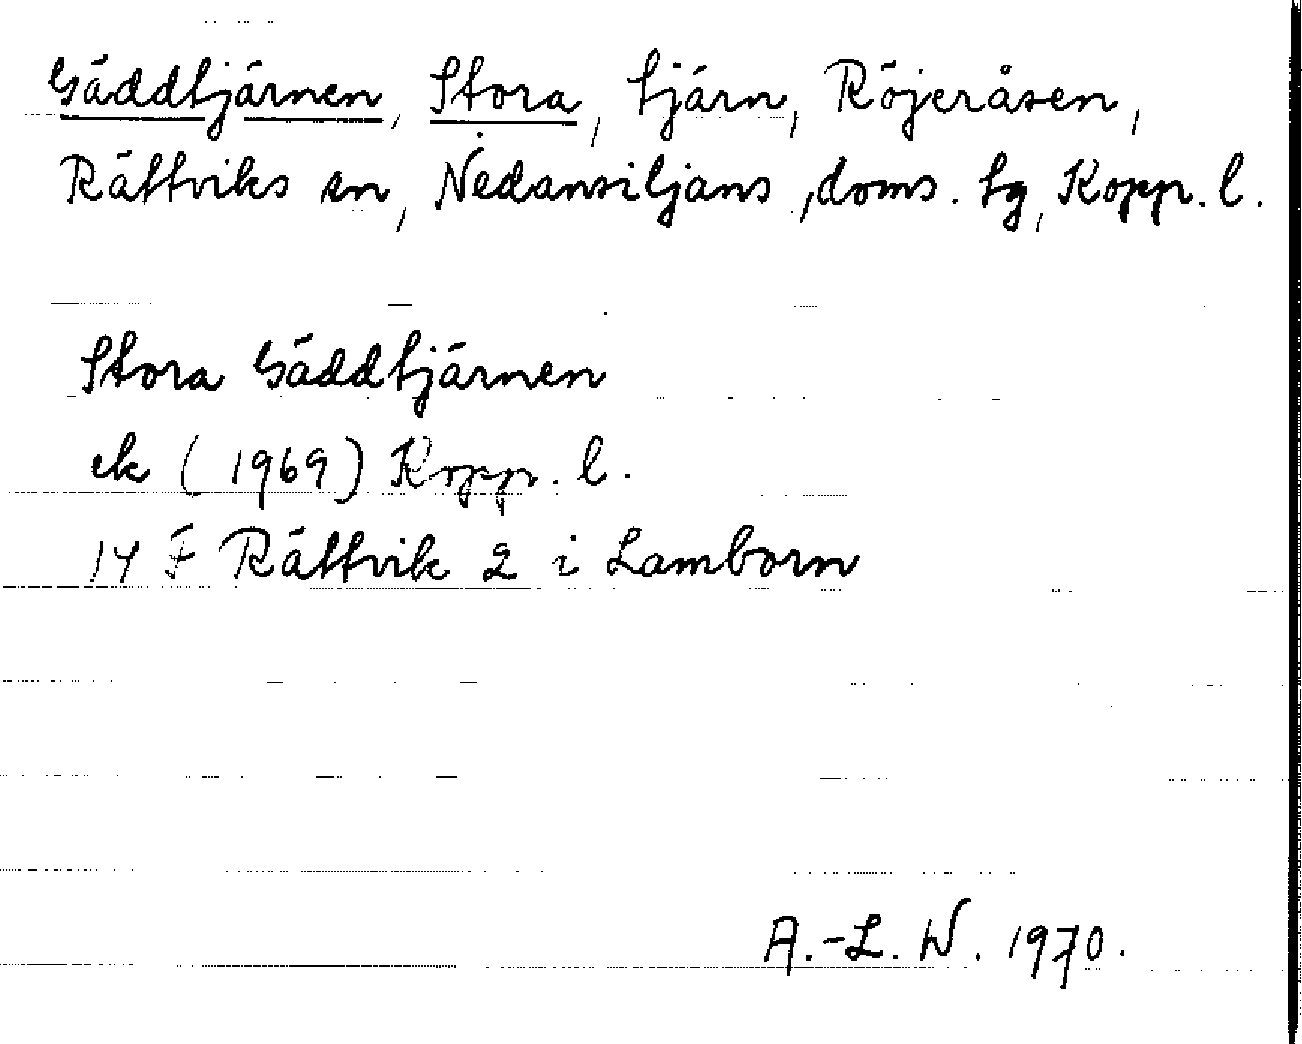 Gäddtjärnen, Stora, tjärn, Röjeråsen,
Rättviks sn, Nedansiljans doms. tg, Kopp. l.
Stora Gäddtjärnen
ek (1969) Kopp. l.
14 F Rättvik 2 i Lamborn
A.-L. W. 1970.